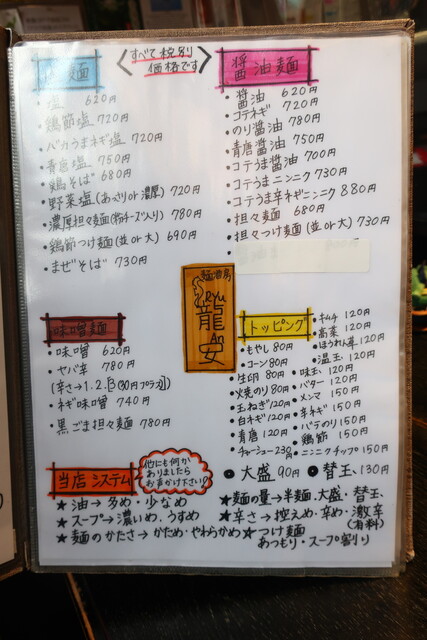 すべて税別
価格です
麺
・塩 620円
・鶏節塩 720円
・バカうまネギ塩 720円
・青唐塩 750円
・鶏そば 680円
・野菜塩(あっさりor濃厚) 720円
・濃厚担々麺(粉チーズ入り) 780円
・鶏節つけ麺(並or大) 690円
・まぜそば 730円
醤油麺
・醤油 620円
・コテネギ 720円
・のり醤油 750円
・青唐醤油 750円
・コテうま醤油 700円
・コテうまニンニク 730円
・コテうま辛ネギニンニク 880円
・担々麺 680円
・担々つけ麺(並or大) 730円
麺酒房
Ryu
龍
An
安
味噌麺
・味噌 620円
・ヤバ辛 780円
・ネギ味噌 740円
・黒ごま担々麺 780円
トッピング
・もやし 80円
・コーン 80円
・生卵 80円
・火焼のり 80円
・玉ねぎ 120円
・白ネギ 120円
・青唐 120円
・チャーシュー 230円
・キムチ 120円
・高菜 120円
・ほうれん草 120円
・温玉 120円
・味玉 120円
・バター 120円
・メンマ 150円
・辛ネギ 150円
・バテのり 150円
・鶏節 150円
・ニンニクチップ 150円
●大盛 90円 ●替玉 130円
当店システム
他にも何か
ありましたら
お声かけ下さい!
★油→多め・少なめ
★スープ→濃いめ、うすめ
★麺のかたさ→かため・やわらかめ
★麺の量→半麺、大盛・替玉
★辛さ→控えめ・辛め・激辛
(有料)
★つけ麺
あつもり・スープ割り